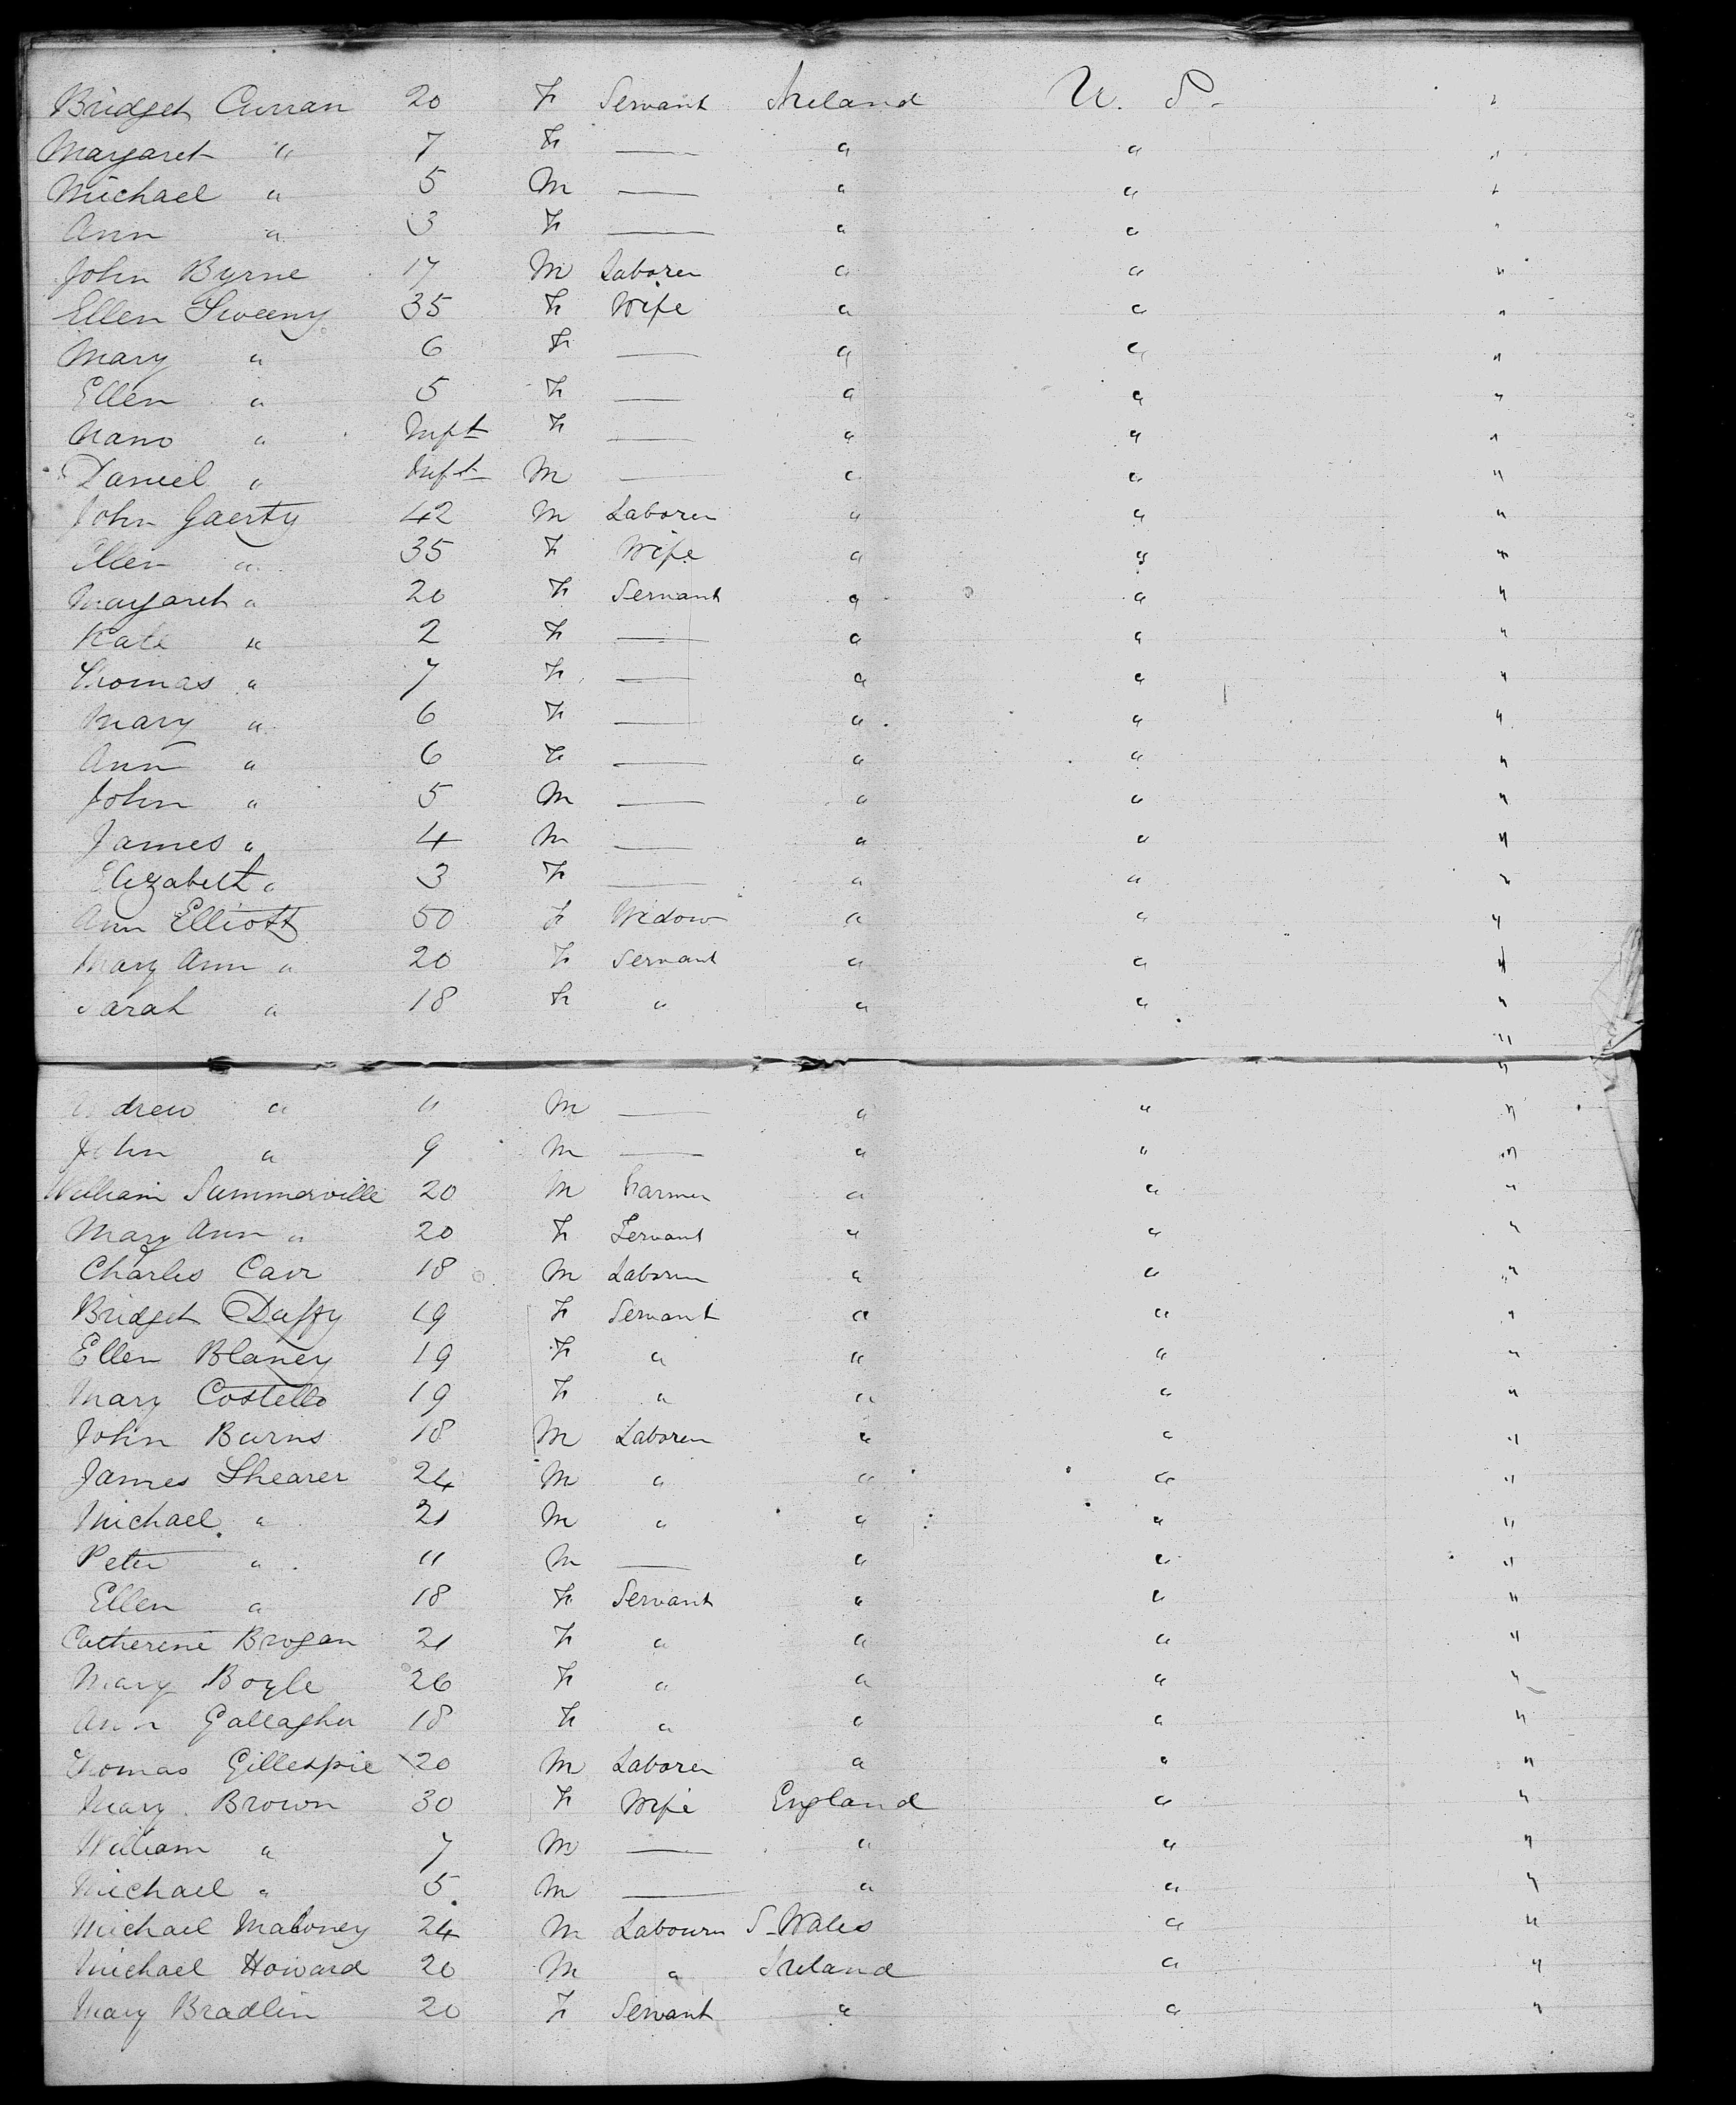 Bridget Curran 20 F Servant Ireland U. S. "
Margaret " 7 F — " " "
Michael " 5 M — " " "
Ann " 3 F — " " "
John Byrne 17 M Laborer " " "
Ellen Sweeny 35 F Wife " " "
Mary " 6 F — " " "
Ellen " 5 F — " " "
Nano " Inft F — " " "
Daniel " Inft M — " " "
John Gaerty 42 M Laborer " " "
Ellen " 35 F Wife " " "
Margaret " 20 F Servant " " "
Kate " 2 F — " " "
Thomas " 7 F — " " "
Mary " 6 F — " " "
Ann " 6 F — " " "
John " 5 M — " " "
James " 4 M — " " "
Elizabeth " 3 F — " " "
Ann Elliott 50 F Widow " " "
Mary Ann " 20 F Servant " " "
Sarah " 18 F " " " "
"
"
Andrew " 11 M — " " "
John " 9 M — " " "
William Summerville 20 M Farmer " " "
Mary Ann " 20 F Servant " " "
Charles Carr 18 M Laborer " " "
Bridget Duffy 19 F Servant " " "
Ellen Blaney 19 F " " " "
Mary Costello 19 F " " " "
John Burns 18 M Laborer " " "
James Shearer 24 M " " " "
Michael " 21 M " " " "
Peter " 11 M — " " "
Ellen " 18 F Servant " " "
Catherine Brogan 21 F " " " "
Mary Boyle 26 F " " " "
Ann Gallagher 18 F " " " "
Thomas Gillespie 20 M Laborer " " "
Mary Brown 30 F Wife England " "
William " 7 M — " " "
Michael " 5 M — " " "
Michael Mahoney 24 M Labourer S. Wales " "
Michael Howard 20 M " Ireland " "
Mary Bradlin 20 F Servant " " "